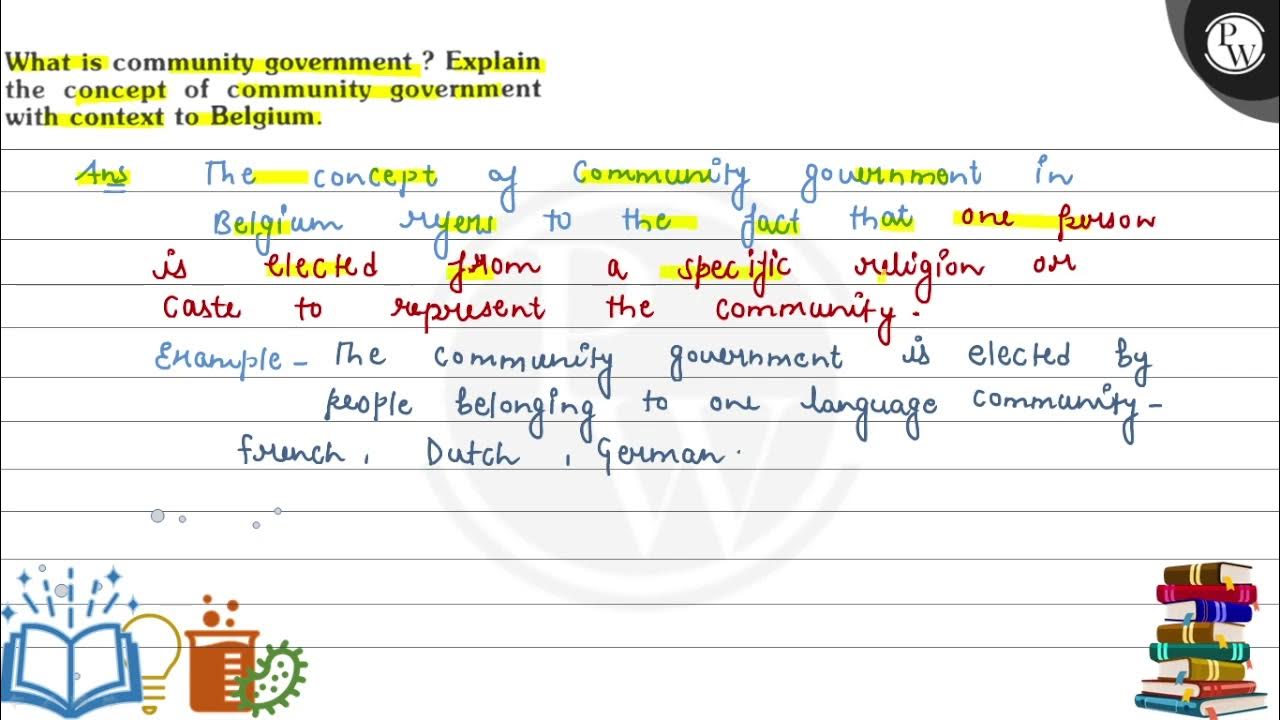 What is community government ? Explain
the concept of community government
with context to Belgium.
PW
Ans The concept of Community government in
Belgium refers to the fact that one person
is elected from a specific religion or
caste to represent the community.
Example - The community government is elected by
people belonging to one language community -
french, Dutch, German.
PW